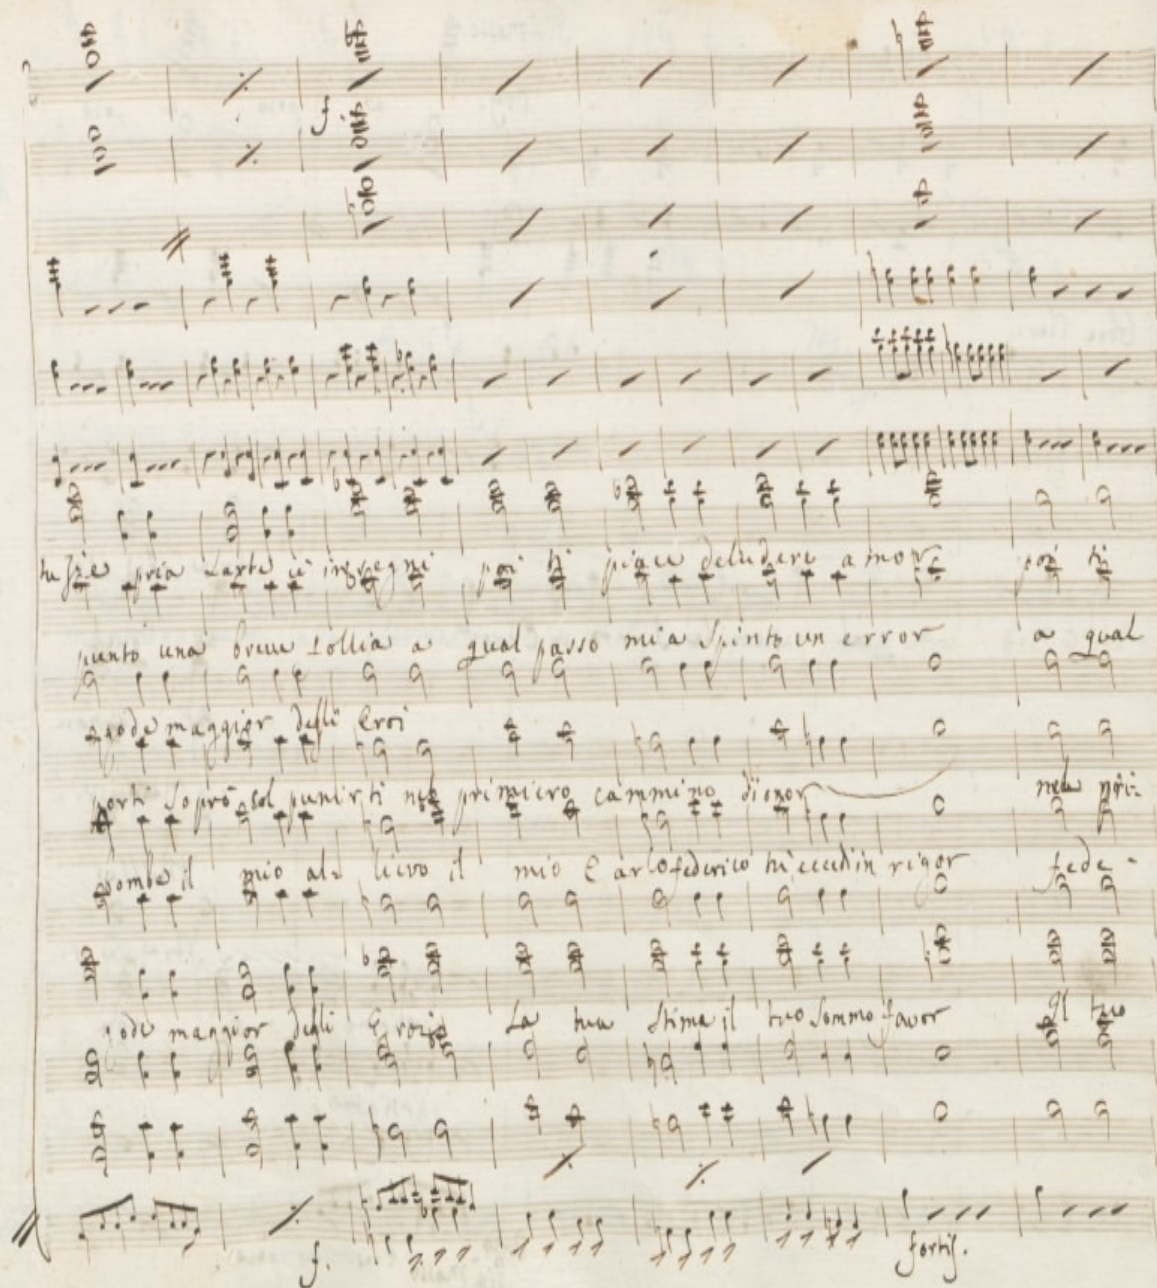 f.
pria l'arte c'insegni poi ti piace deludere amor poi ti
punto una breve follia a qual passo mia spinto un error a qual
gode maggior degli Eroi
porti sopro sol punirti primiero cammino di onor
bombe il mio al= lievo il mio Carlo federico tu ecced in rigor fede=
gode maggior degli Eroi La tua stima il tuo sommo favor Il tuo
f. fortis.